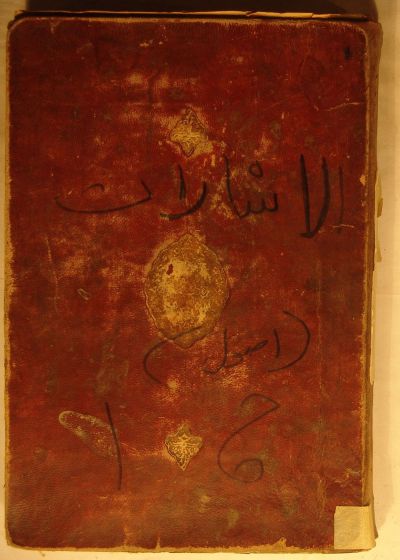 الاشارات
(اصول)
ج ١